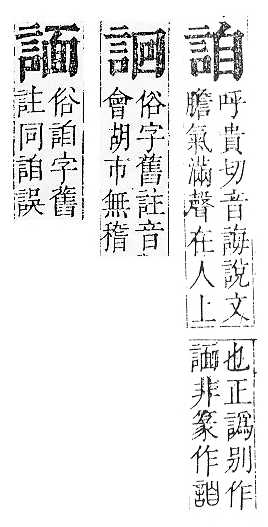 詯
呼貴切音誨說文
膽氣滿聲在人上
也正譌別作
非篆作
俗字舊註音
會胡市無稽
俗詯字舊
註同詯誤